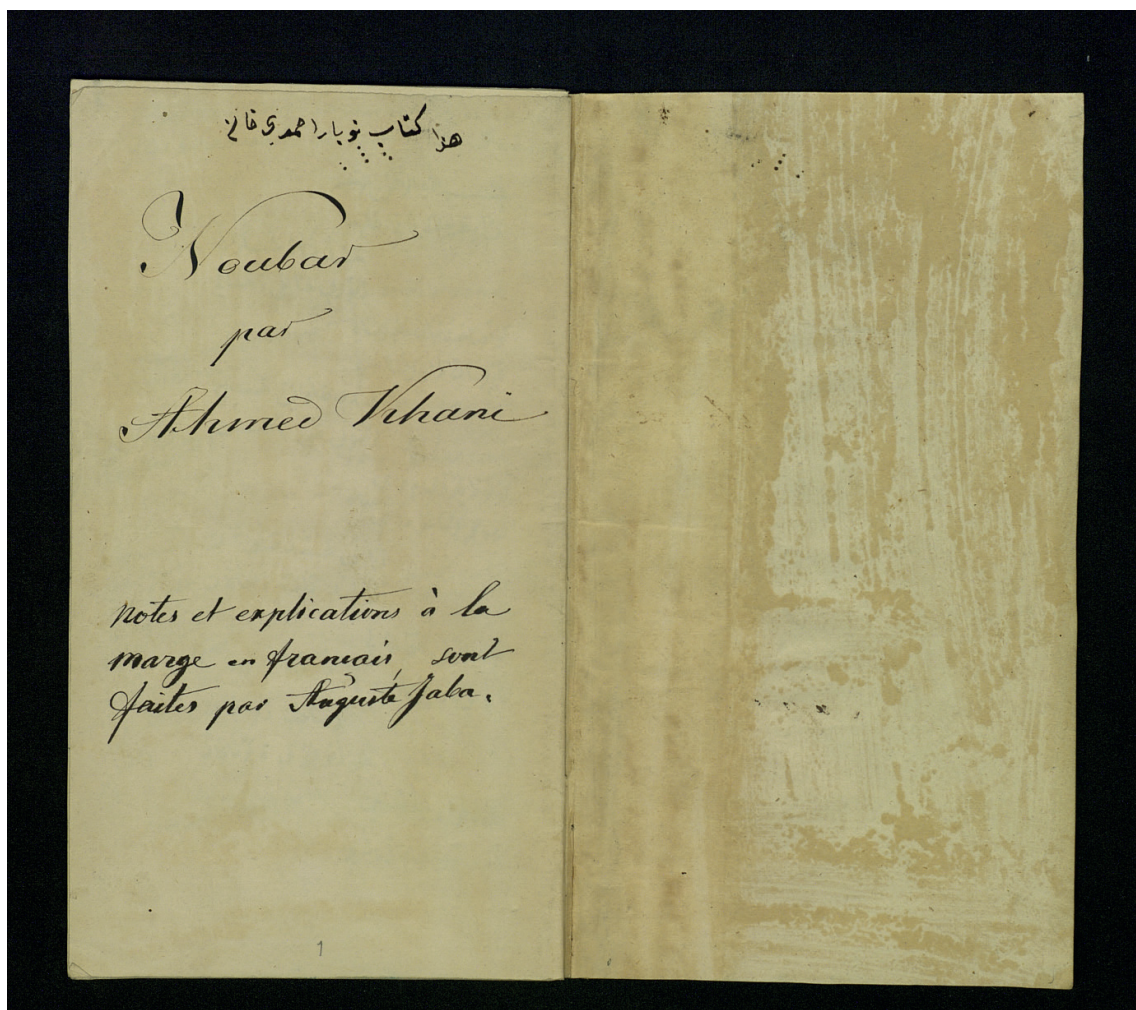 هذا كتاب نوبار احمدي خاني
Noubar
par
Ahmed Khani
Notes et explications à la
marge en français, sont
faites par Auguste Jaba.
1